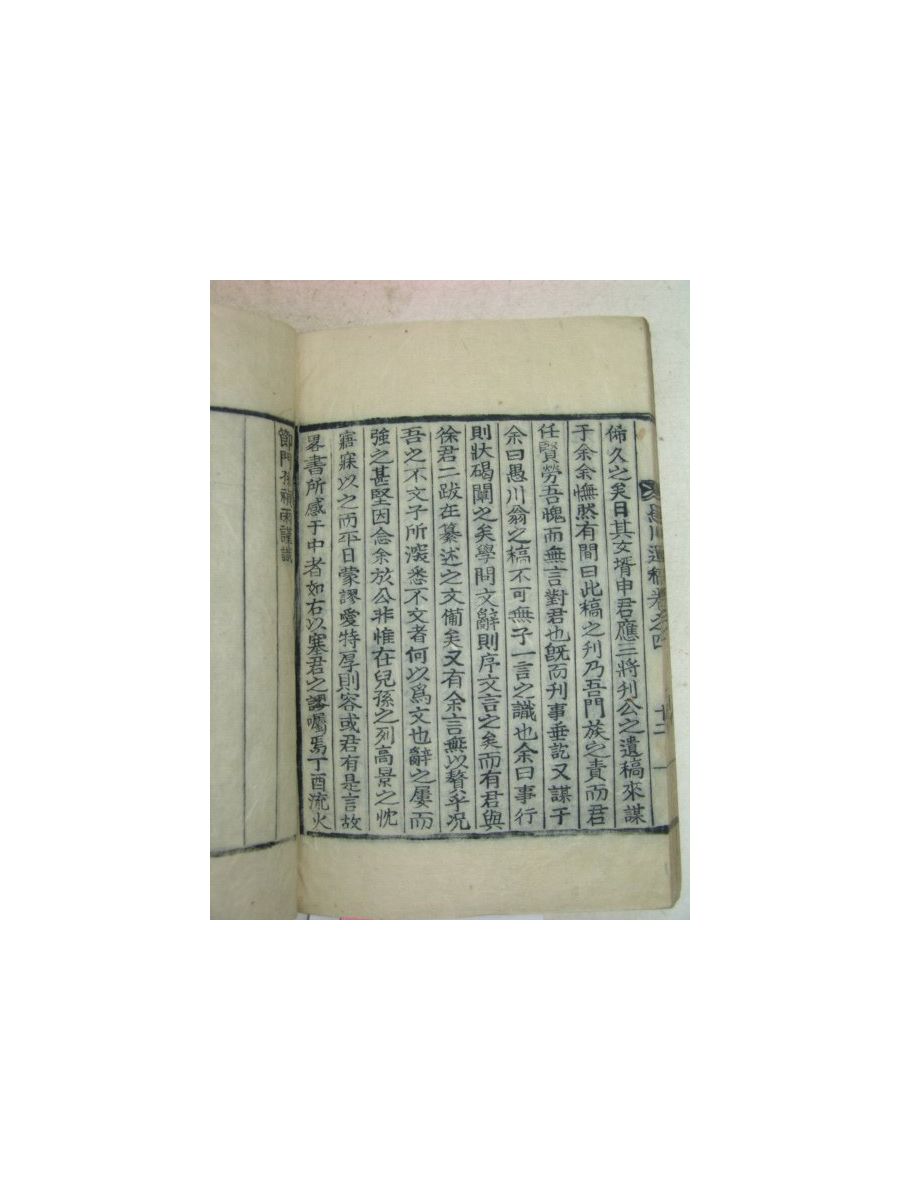 愚川遺稿卷之四 十二
俙久之矣日其女壻申君應三將刋公之遺稿來謀
于余余憮然有間曰此稿之刋乃吾門族之責而君
任賢勞吾愧而無言對君也旣而刋事垂訖又謀于
余曰愚川翁之稿不可無子一言之識也余曰事行
則狀碣闡之矣學問文辭則序文言之矣而有君與
徐君二跋在纂述之文備矣又有余言無以贅乎况
吾之不文子所深悉不文者何以爲文也辭之屢而
強之甚堅因念余於公非惟在兒孫之列高景之忱
寤寐以之而平日蒙謬愛特厚則容或君有是言故
畧書所感于中者如右以塞君之謬囑焉丁酉流火
節門孫禎雨謹識